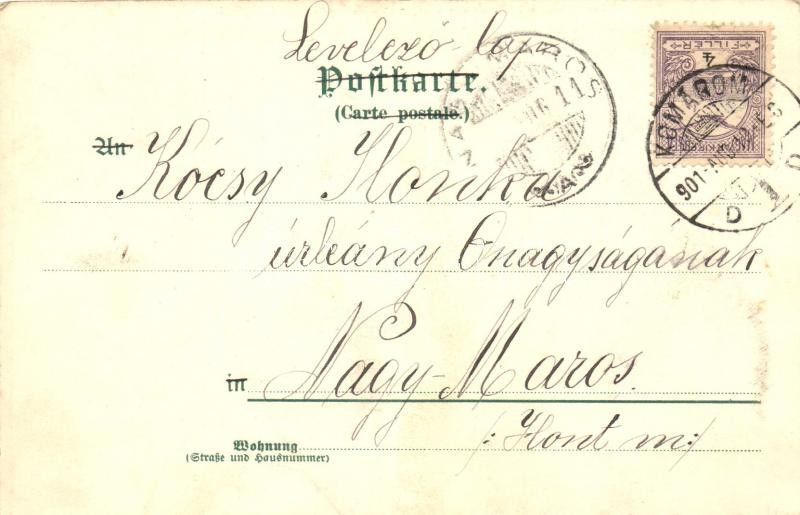 Levelező-lap
Postkarte.
(Carte postale.)
An
Kócsy Ilonka
úrleány Őnagyságának
in Nagy-Maros.
/: Hont m:/
Wohnung
(Straße und Hausnummer)
4
FILLÉR
KOMÁROM
D
MAROS